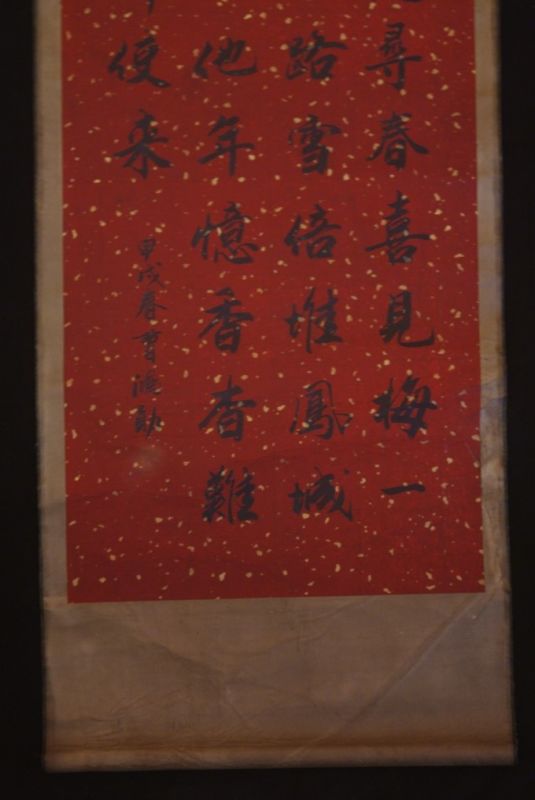 尋春喜見梅一
路雪倍堆鳳城
他年憶香杳難
便来
甲戌春書